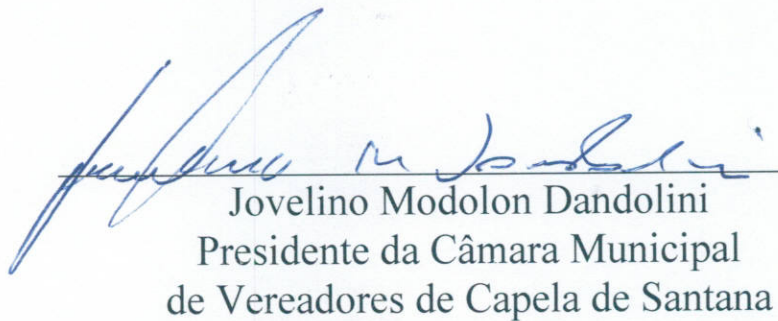 Jovelino Modolon Dandolini
Presidente da Câmara Municipal
de Vereadores de Capela de Santana